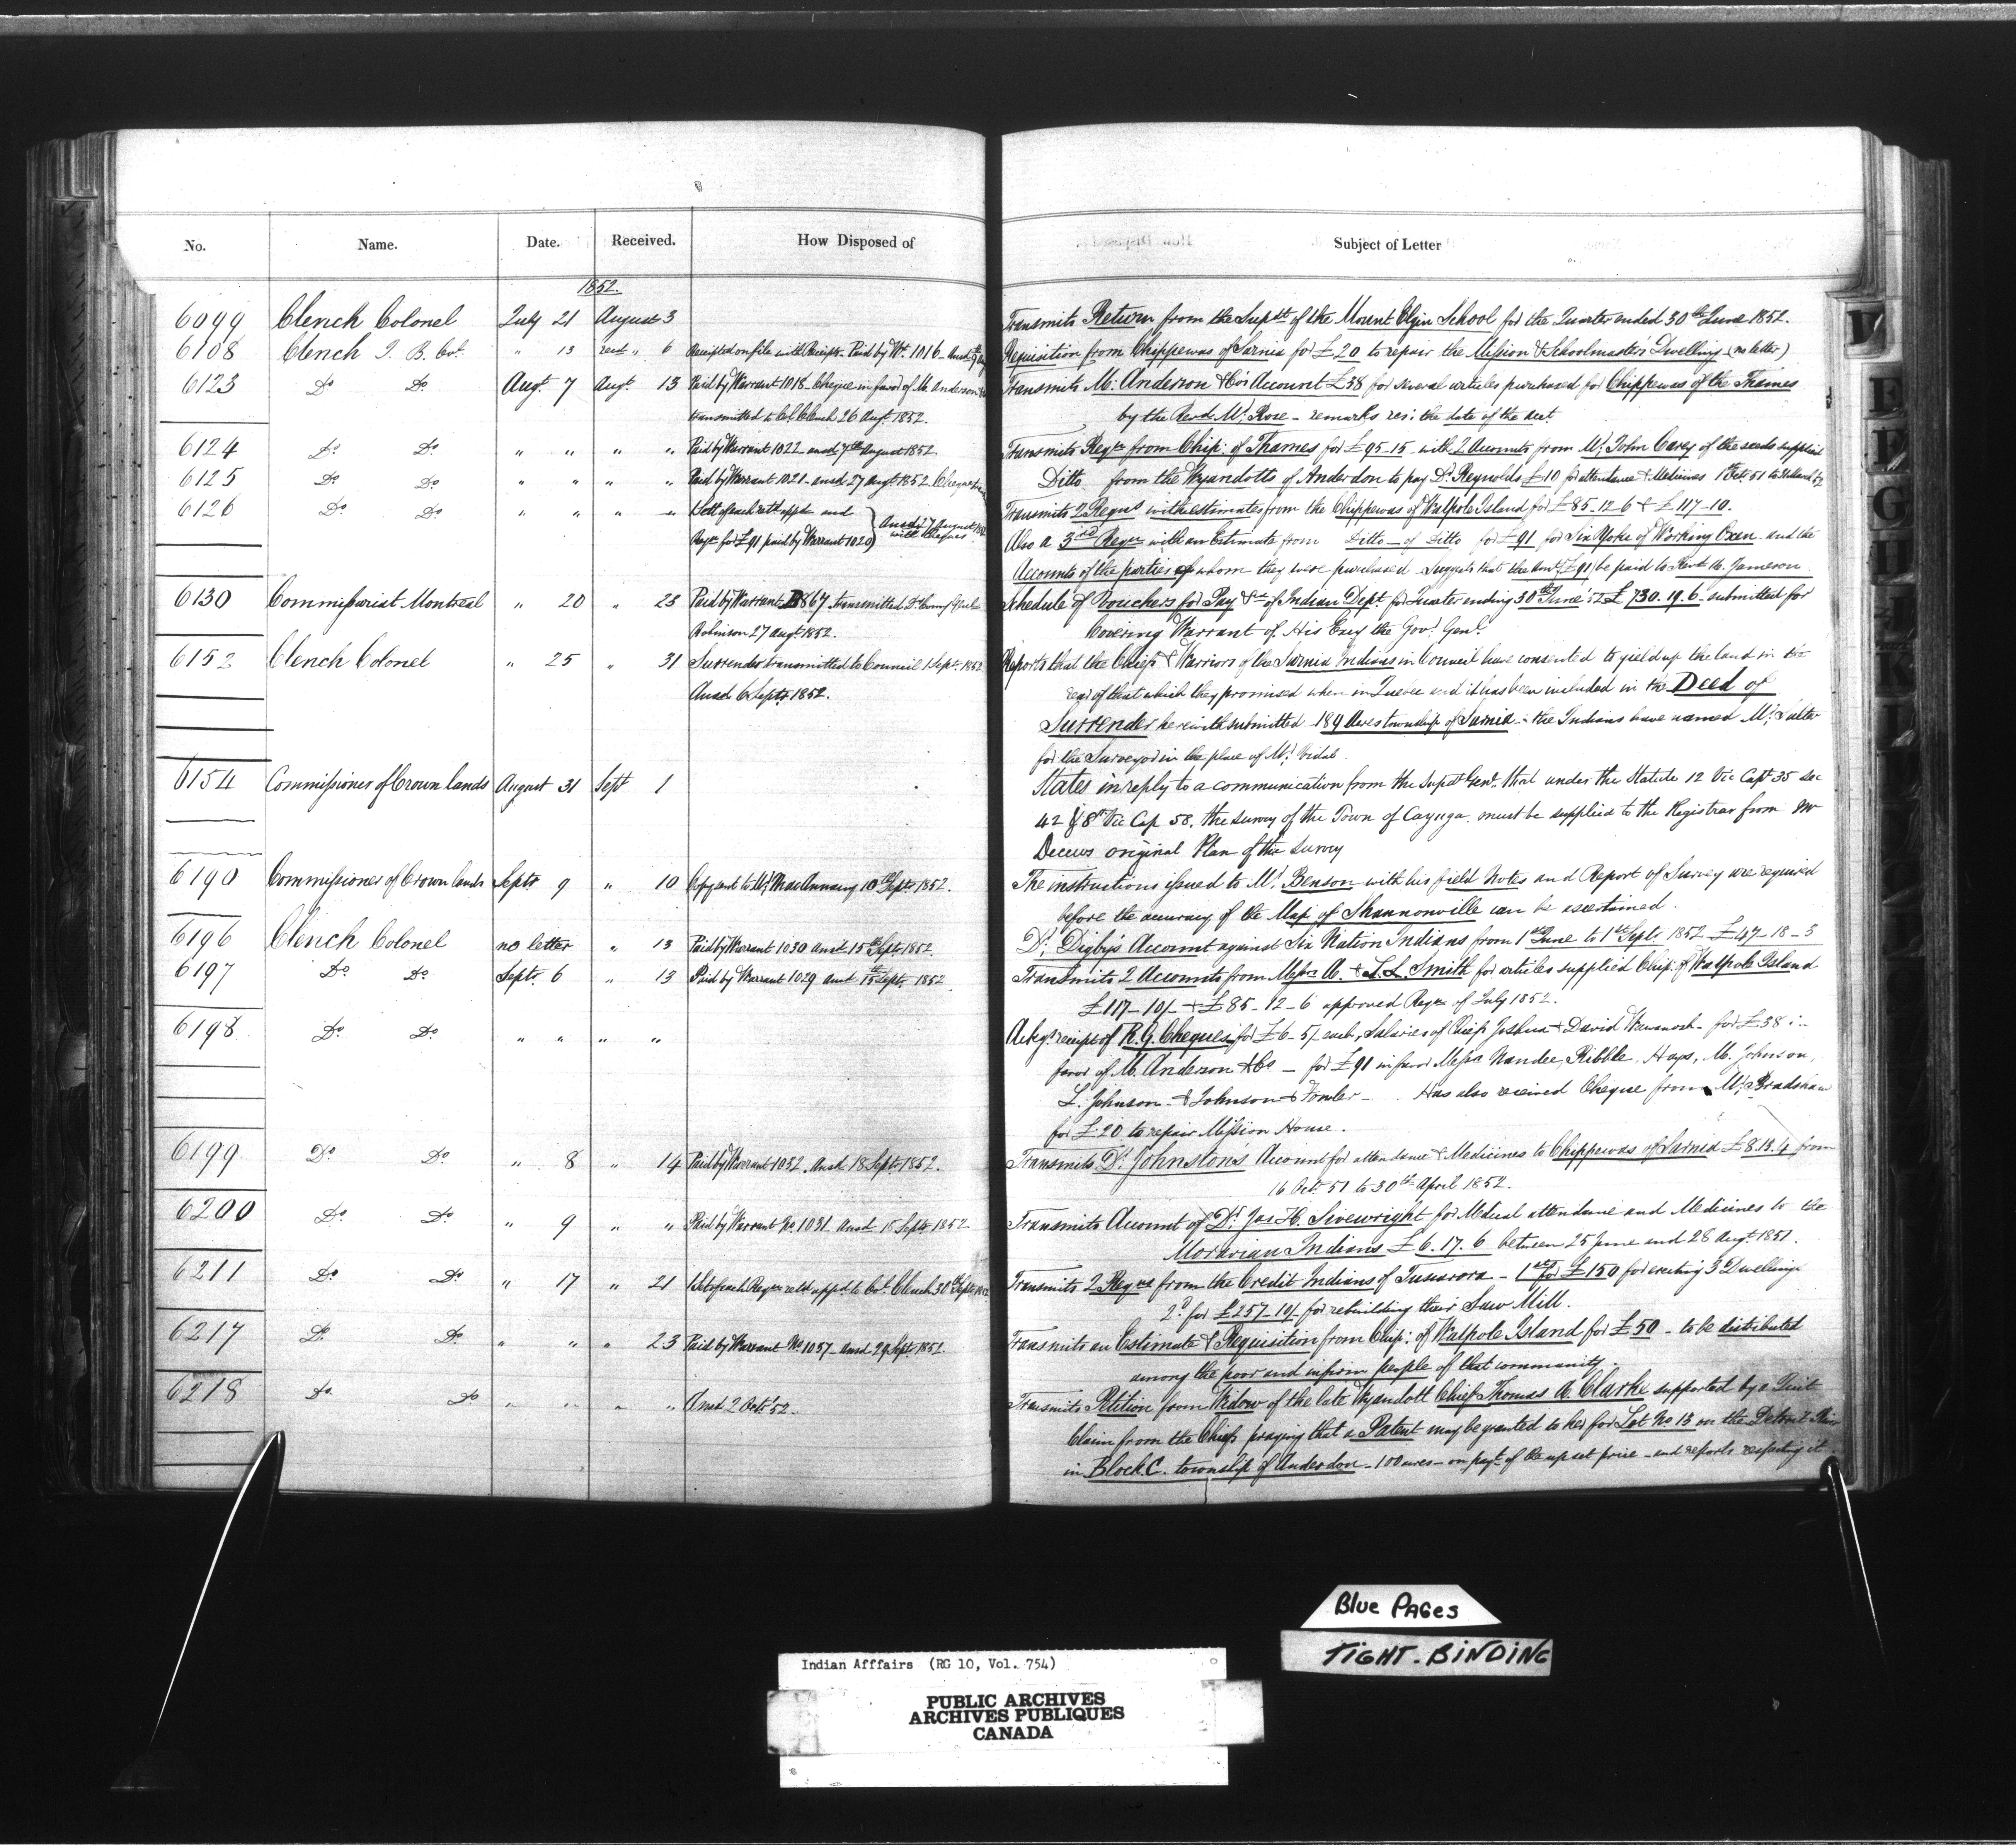 No. Name. Date. Received. How Disposed of Subject of Letter
1852.
6099 Clench Colonel July 21 August 3 Transmits Return from the Supdt of the Mount Elgin School for the Quarter ended 30th June 1852.
6108 Clench J. B. Col. " 13 " 6 Receipted on file with Receipts Paid by Wt. 1016 Requisition from Chippewas of Sarnia for £20 to repair the Mission & Schoolmaster's Dwelling (no letter)
6123 Do Do Augt. 7 Augt. 13 Paid by Warrant 1018 Cheque in favor of M. Anderson Transmits M. Anderson & Co's Account £38 for several articles purchased for Chippewas of the Thames
transmitted to Col. Clench 26 Augt. 1852. by the Revd. Mr. Rose - remarks res: the date of the acct.
6124 Do Do " " " " Paid by Warrant 1022 ansd 7th August 1852. Transmits Reqn from Chip: of Thames for £95-15 with 2 Accounts from Mr. John Carey of the seeds supplied
6125 Do Do " " " " Paid by Warrant 1021 ansd 27 Augt 1852. Cheque Ditto from the Wyandotts of Anderdon to pay Dr. Reynolds £10 for attendance & Medicines
6126 Do Do " " " " 1 Sett of each retd appd and Transmits 2 Reqns with estimates from the Chippewas of Walpole Island for £85-12-6 & £117-10.
Reqn for £91 paid by Warrant 1020 Ansd 27 August with Cheques Also a 3rd Reqn with an Estimate from Ditto of Ditto for £91 for Six Yoke of Working Oxen and the
Accounts of the parties of whom they were purchased Suggests that the amt (£91) be paid to Revd. Jameson
6130 Commissariat Montreal " 20 " 23 Paid by Warrant B867 transmitted Robinson 27 Augt. 1852. Schedule of Vouchers for Pay &c of Indian Dept. for Quarter ending 30th June '52 £730.19.6 submitted for
Covering Warrant of His Excy the Gov. Genl.
6152 Clench Colonel " 25 " 31 Surrender transmitted to Council 1 Sept. 1852 Reports that the Chiefs & Warriors of the Sarnia Indians in Council have consented to yield up the land in the
Ansd 6 Septr. 1852. rear of that which they promised when in Quebec and it has been included in the Deed of
Surrender herewith submitted 189 Acres township of Sarnia - the Indians have named Mr. Salter
for the Surveyor in the place of Mr. Vidal.
6154 Commissioner of Crown Lands August 31 Sept 1 States in reply to a communication from the Supdt Genl. that under the Statute 12 Vic Capt. 35 sec
42 & 8th Vic Cap 58. the survey of the Town of Cayuga must be supplied to the Registrar from Mr
Decews original Plan of the Survey
6190 Commissioner of Crown Lands Septr 9 " 10 Copy sent to Mr. MacAnnany 10th Septr 1852. The instructions issued to Mr. Benson with his field Notes and Report of Survey are required
before the accuracy of the Map of Shannonville can be ascertained.
6196 Clench Colonel no letter " 13 Paid by Warrant 1030 ansd 15th Septr. 1852. Dr. Digby's Account against Six Nation Indians from 1st June to 1st Septr. 1852 £47-18-3
6197 Do Do Septr. 6 " 13 Paid by Warrant 1029 ansd 15th Septr. 1852 Transmits 2 Accounts from Messrs A. & L. L. Smith for articles supplied Chip: of Walpole Island
£117-10/- & £85-12-6 approved Reqns of July 1852.
6198 Do Do " " " " Ackgs receipt of R. G. Cheques for £6-5/ each, Salaries of Chiefs Joshua & David Wawanosh - for £38 in
favor of M. Anderson & Co - for £91 in favor Messrs Nandee, Ribble, Hays, M. Johnson,
L. Johnson & Johnson & Fowler - Has also received Cheque from Mr. Bradshaw
for £20 to repair Mission House.
6199 Do Do " 8 " 14 Paid by Warrant 1032. Ansd 18 Sept. 1852. Transmits Dr. Johnston's Account for attendance & Medicines to Chippewas of Sarnia £8.13.4 from
16 Oct. 51 to 30th April 1852.
6200 Do Do " 9 " " Paid by Warrant No. 1031 ansd 18 Septr 1852 Transmits Account of Dr. Jas H. Sivewright for Medical attendance and Medicines to the
Moravian Indians £6.17.6 between 25 June and 28 Augt. 1851.
6211 Do Do " 17 " 21 1 Set of each Reqn retd appd to Col. Clench 30th Septr 1852 Transmits 2 Reqns from the Credit Indians of Tuscarora - 1st for £150 for erecting 3 Dwellings
2d. for £257-10/- for rebuilding their Saw Mill.
6217 Do Do " " " 23 Paid by Warrant No 1037 ansd 29 Sept. 1852. Transmits an Estimate & Requisition from Chip: of Walpole Island for £50 - to be distributed
among the poor and infirm people of that community.
6218 Do Do " " " " Ansd 2 Octr. 52. Transmits Petition from Widow of the late Wyandott Chief Thomas A. Clarke supported by a Quit
Claim from the Chiefs praying that a Patent may be granted to her for Lot No 13 on the Detroit River
in Block C. township of Anderdon - 100 acres - on payt. of the upset price - and reports respecting it.
D
E
F
G
H
I
K
L
Blue PAGes
TIGHT-BINDING
Indian Afffairs (RG 10, Vol. 754)
PUBLIC ARCHIVES
ARCHIVES PUBLIQUES
CANADA